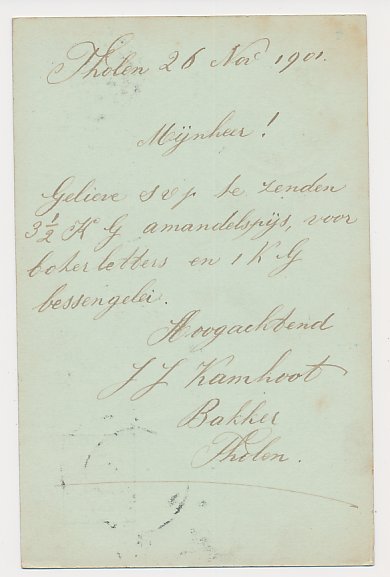 Tholen 26 Nov 1901.
Mijnheer!
Gelieve s v p te zenden
3 1/2 K G amandelspijs, voor
boterletters en 1 K G
bessengelei.
Hoogachtend
J J Kamhoot
Bakker
Tholen.